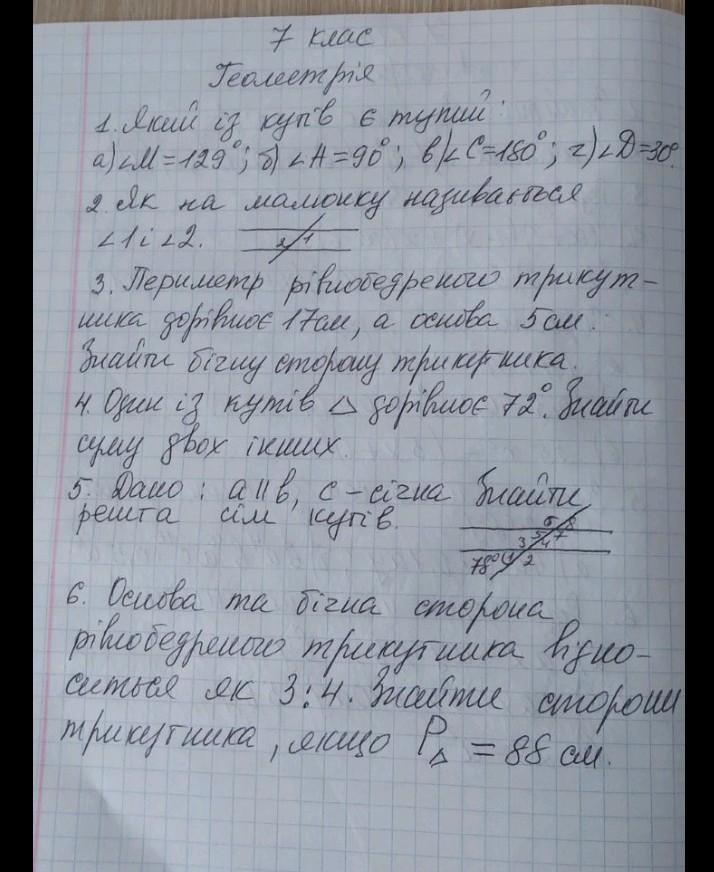 7 клас
Геометрія
1. Який із кутів є тупий:
а) ∠М = 129°; б) ∠А = 90°; в) ∠С = 180°; г) ∠D = 30°.
2. Як на малюнку називається
∠1 і ∠2.
2 1
3. Периметр рівнобедреного трикут-
ника дорівнює 17см, а основа 5 см.
Знайти бічну сторону трикутника.
4. Один із кутів △ дорівнює 72°. Знайти
суму двох інших.
5. Дано: a || b, c – січна Знайти
решта сім кутів.
6 8
5 7
3 4
78° 1 2
6. Основа та бічна сторона
рівнобедреного трикутника відно-
ситься як 3:4. Знайти сторони
трикутника, якщо P△ = 88 см.